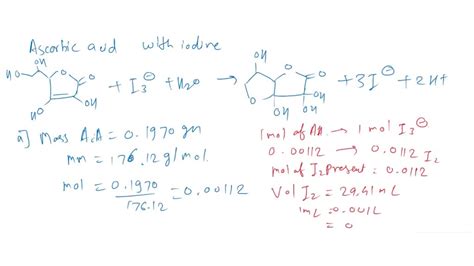 Ascorbic acid with iodine
HO OH O O HO OH + I3⊖ + H2O → OH O O O OH OH OH + 3I⊖ + 2H+
a] Mass A.A = 0.1970 gm
mm = 176.12 g/mol.
mol = 0.1970 / 176.12 = 0.00112
1 mol of AA → 1 mol I3⊖
0.00112 → 0.0112 I2
mol of I2 present = 0.0112
Vol I2 = 29.41 mL
1mL = 0.001L
= 0